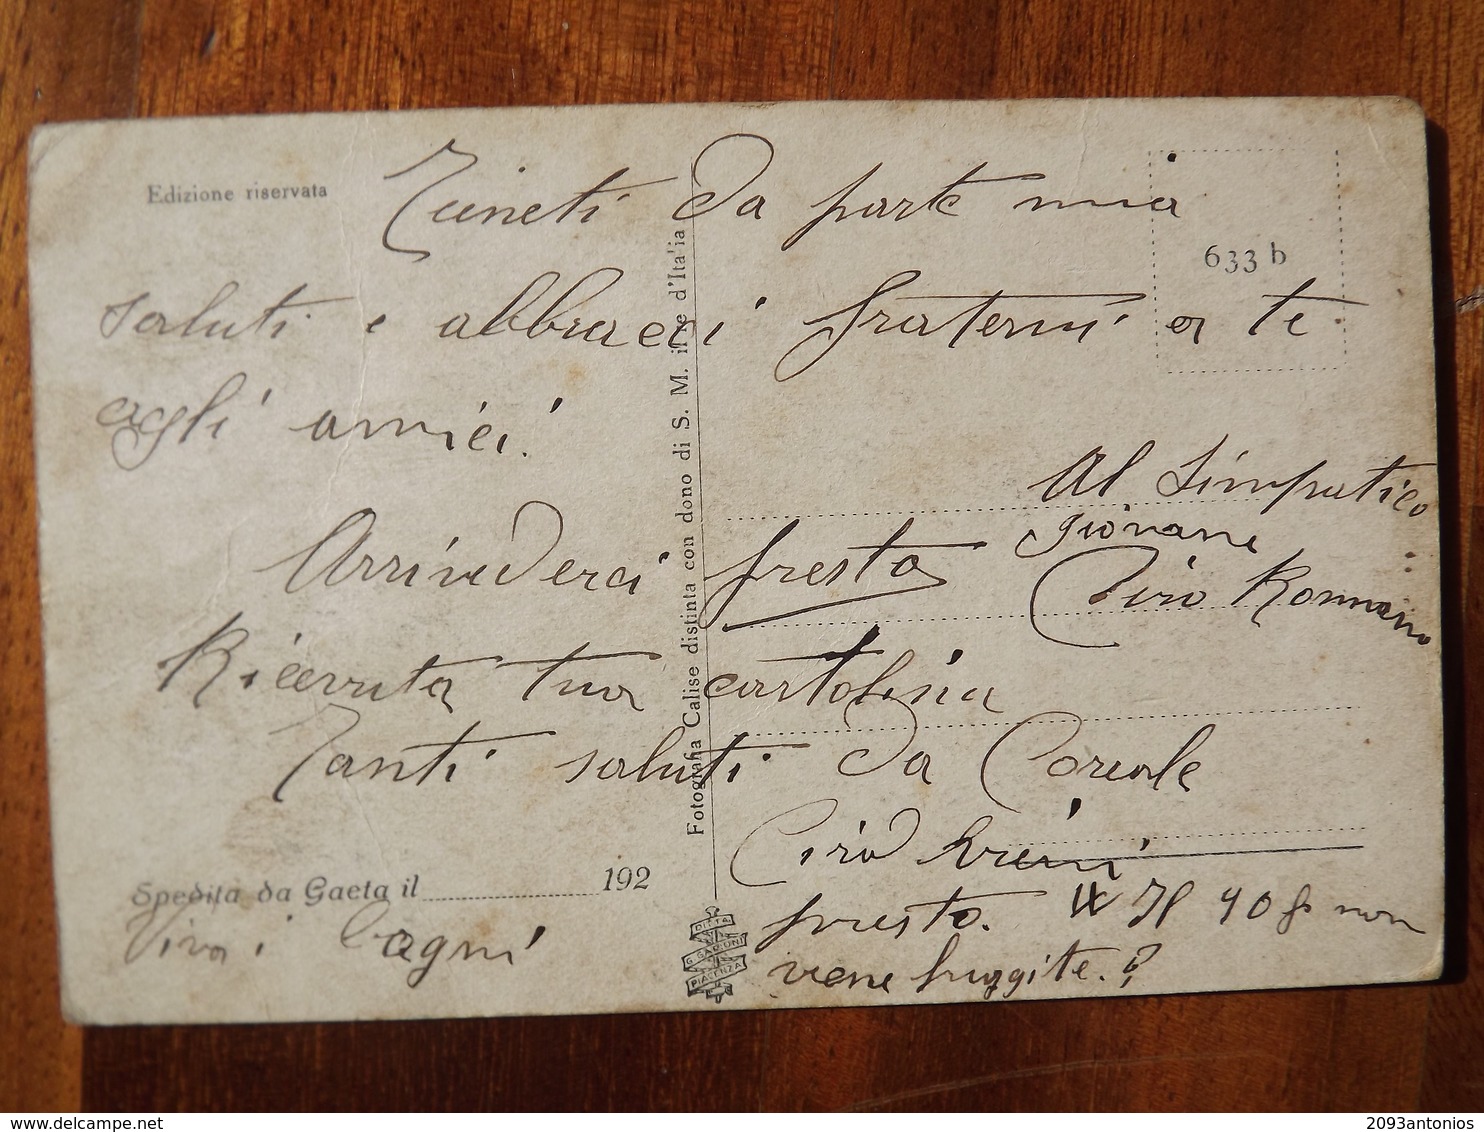 Edizione riservata
da parte mia
633 b
saluti e abbracci fraterni a te
agli amici.
Al Simpatico
giovane
Ciro Rommano
Arrivederci presto
Ricevuta tua cartolina
Tanti saluti da
Ciro
presto. W Il 90 non
viene fuggite.?
Spedita da Gaeta il 192
Viva i bagni
Fotografia Calise distinta con dono di S. M. il re d'Italia
DITTA
G. GARIONI
PIACENZA
2093antonios